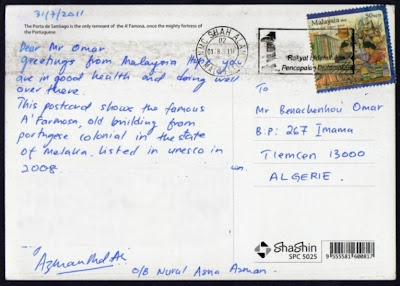 31/7/2011
The Porta de Santiago is the only remnant of the A' Famosa, once the mighty fortress of
the Portuguese.
Dear Mr Omar
Greetings from Malaysia. Hope you
are in good health and doing well
over there.
This postcard shows the famous
A'Farmosa, old building from
portugese colonial in the state
of Melaka. Listed in unesco in
2008.
Azman Md Ali
O/B Nurul Asna Azman.
SHAH ALAM
Malaysia
50 sen
Rakyat Didahulukan
Pencapaian Diutamakan
To
Mr Benachenhou Omar
B.P: 267 Imama
Tlemcen 13000
ALGERIE.
ShaShin
SPC 5025
9 555581 600817